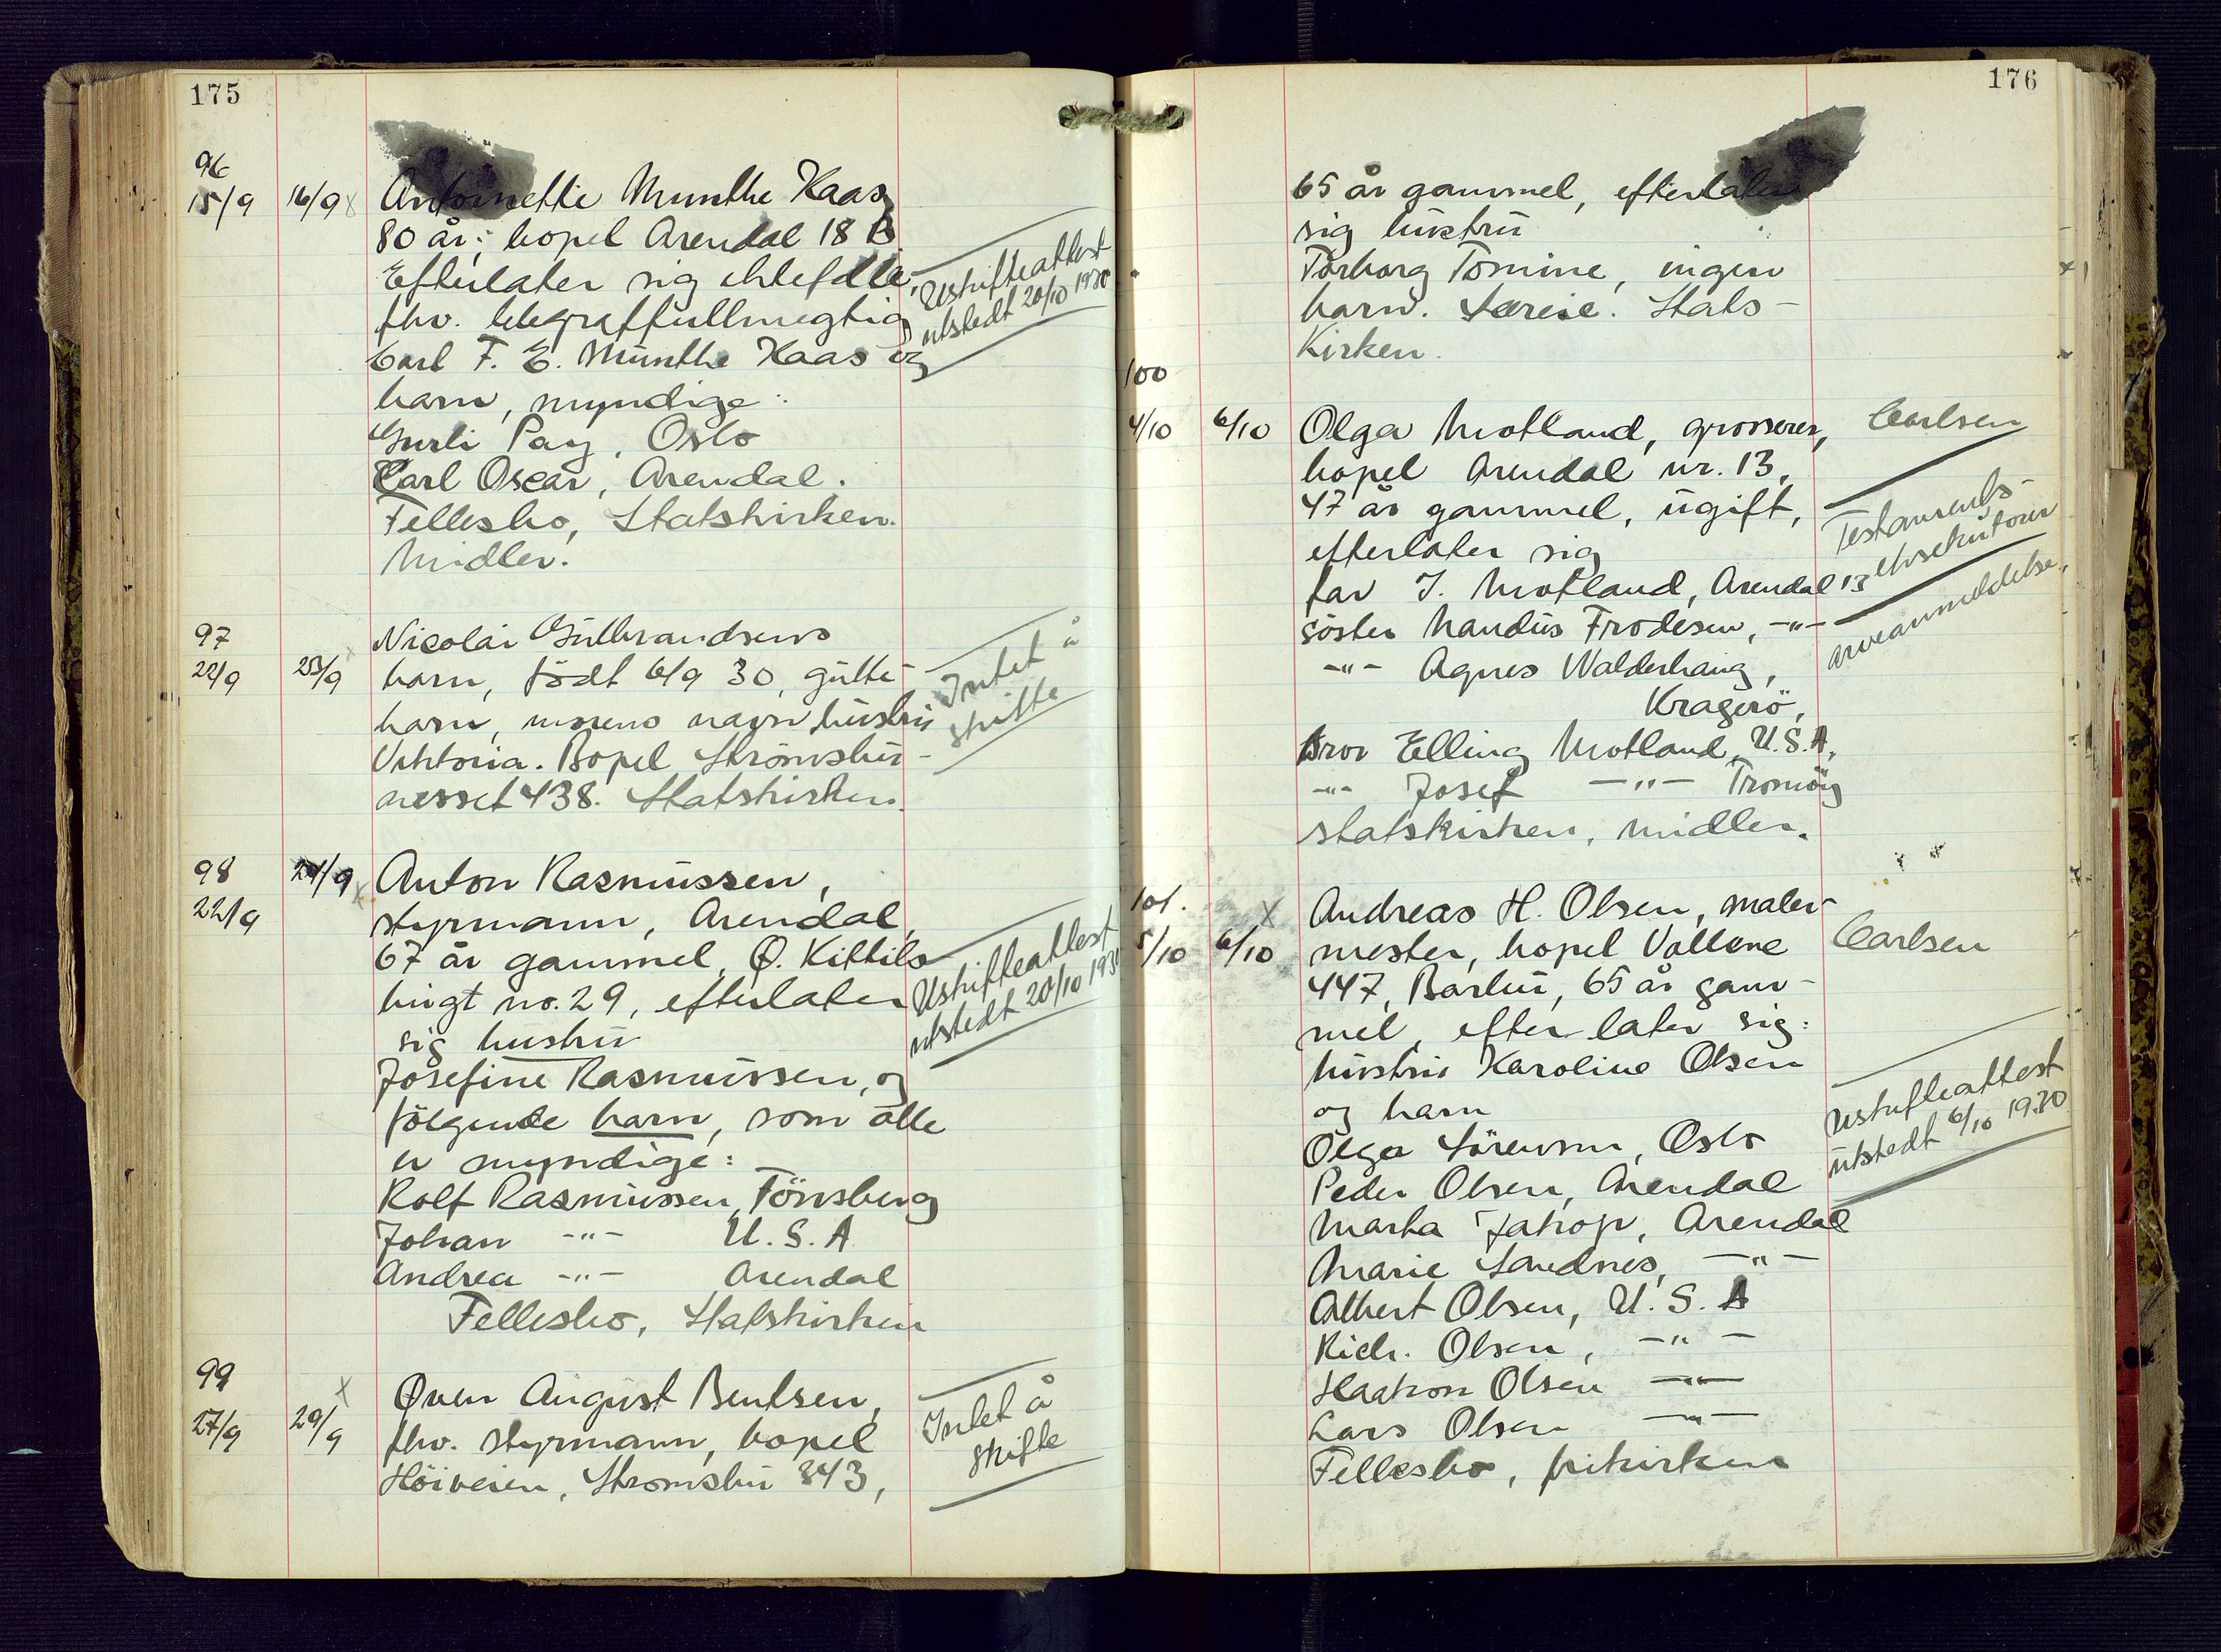 175
96
15/9 16/9 x Antoinette Munthe Kaas,
80 år, bopel Arendal 18 B
Efterlater sig ektefelle,
fhv. telegraffullmegtig
Carl F. E. Munthe Kaas og
barn, myndige:
Gurli Pay, Oslo
Carl Oscar, Arendal.
Fellesbo, Statskirken.
Midler.
Uskifteattest
utstedt 20/10 1930
97
22/9 23/9 x Nicolai Gulbrandsens
barn, födt 6/9 30, gutte-
barn, morens navn hustru
Viktoria. Bopel Strömsbu-
neset 438. Statskirken.
Intet å
skifte
98
22/9 24/9 x Anton Rasmussen,
styrmann, Arendal,
67 år gammel, Ø. Kittils-
bugt no. 29, efterlater
sig hustru
Josefine Rasmussen, og
fölgende barn, som alle
er myndige:
Rolf Rasmussen, Tönsberg
Johan -"- U.S.A
Andrea -"- Arendal
Fellesbo, Statskirken
Uskifteattest
utstedt 20/10 1930
99
27/9 29/9 x Oven August Bentsen,
fhv. styrmann, bopel
Höiveien, Strömsbu 343,
Intet å
skifte
176
65 år gammel, efterlater
sig hustru
Torborg Tomine, ingen
barn. Særeie. Stats-
kirken.
100
4/10 6/10 Olga Motland, grosserer,
bopel Arendal nr. 13,
47 år gammel, ugift,
efterlater sig
far J. Motland, Arendal 13
söster Nandus Frodesen, -"-
-"- Agnes Walderhaug,
Kragerö,
Bror Elling Motland, U.S.A,
-"- Josef -"- Tromöy
statskirken, midler.
Carlsen
Testaments-
eksekutorer
arveanmeldelse.
101.
5/10 6/10 x Andreas H. Olsen, maler-
mester, bopel Vollene
447, Barbu, 65 år gam-
mel, efterlater sig:
hustru Karoline Olsen
og barn
Olga Sörensen, Oslo
Peder Olsen, Arendal
Marta Jakop, Arendal
Marie Sandnes, -"-
Albert Olsen, U.S.A
Rich. Olsen, -"-
Haakon Olsen -"-
Lars Olsen -"-
Fellesbo, frikirken
Carlsen
Uskifteattest
utstedt 6/10 1930